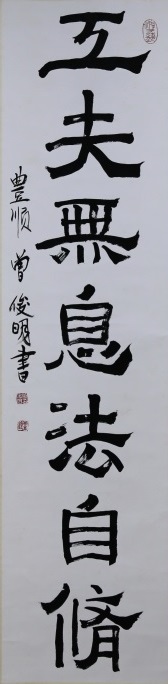 工夫無息法自脩
豊順曾俊明書